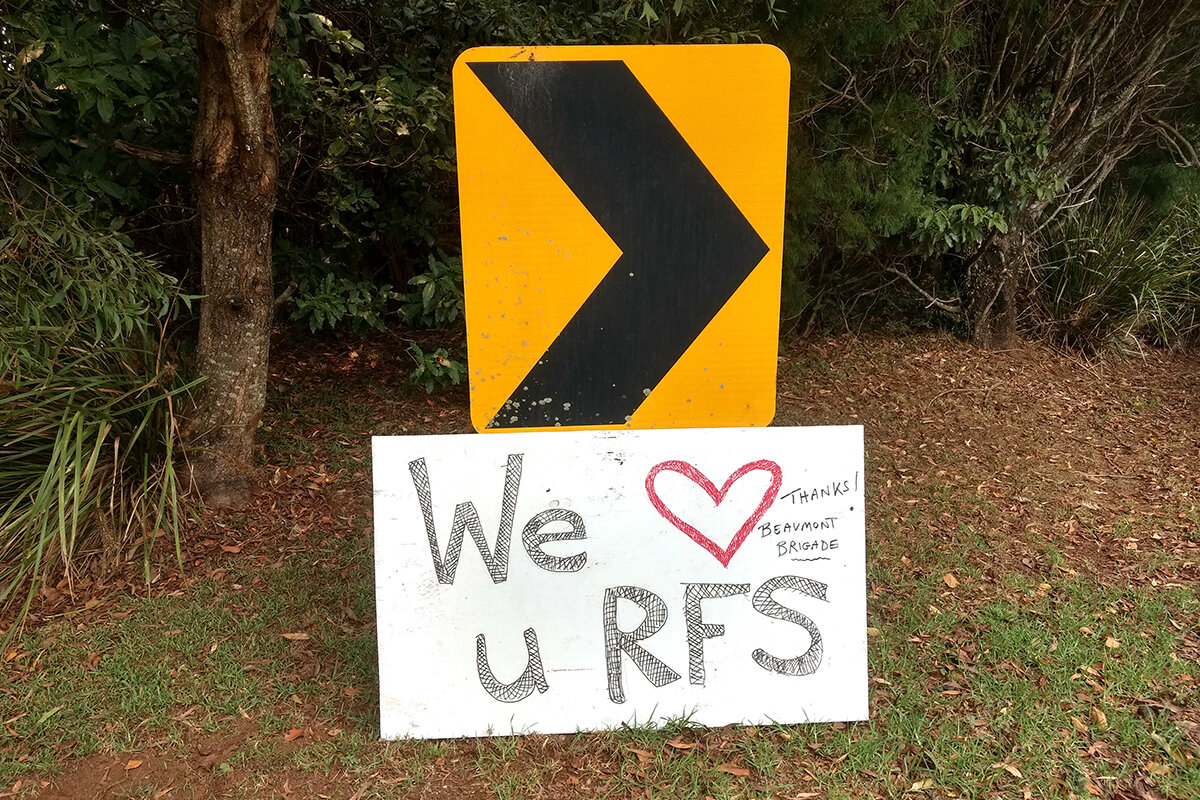 We ♥
THANKS!
BEAUMONT
BRIGADE
u RFS